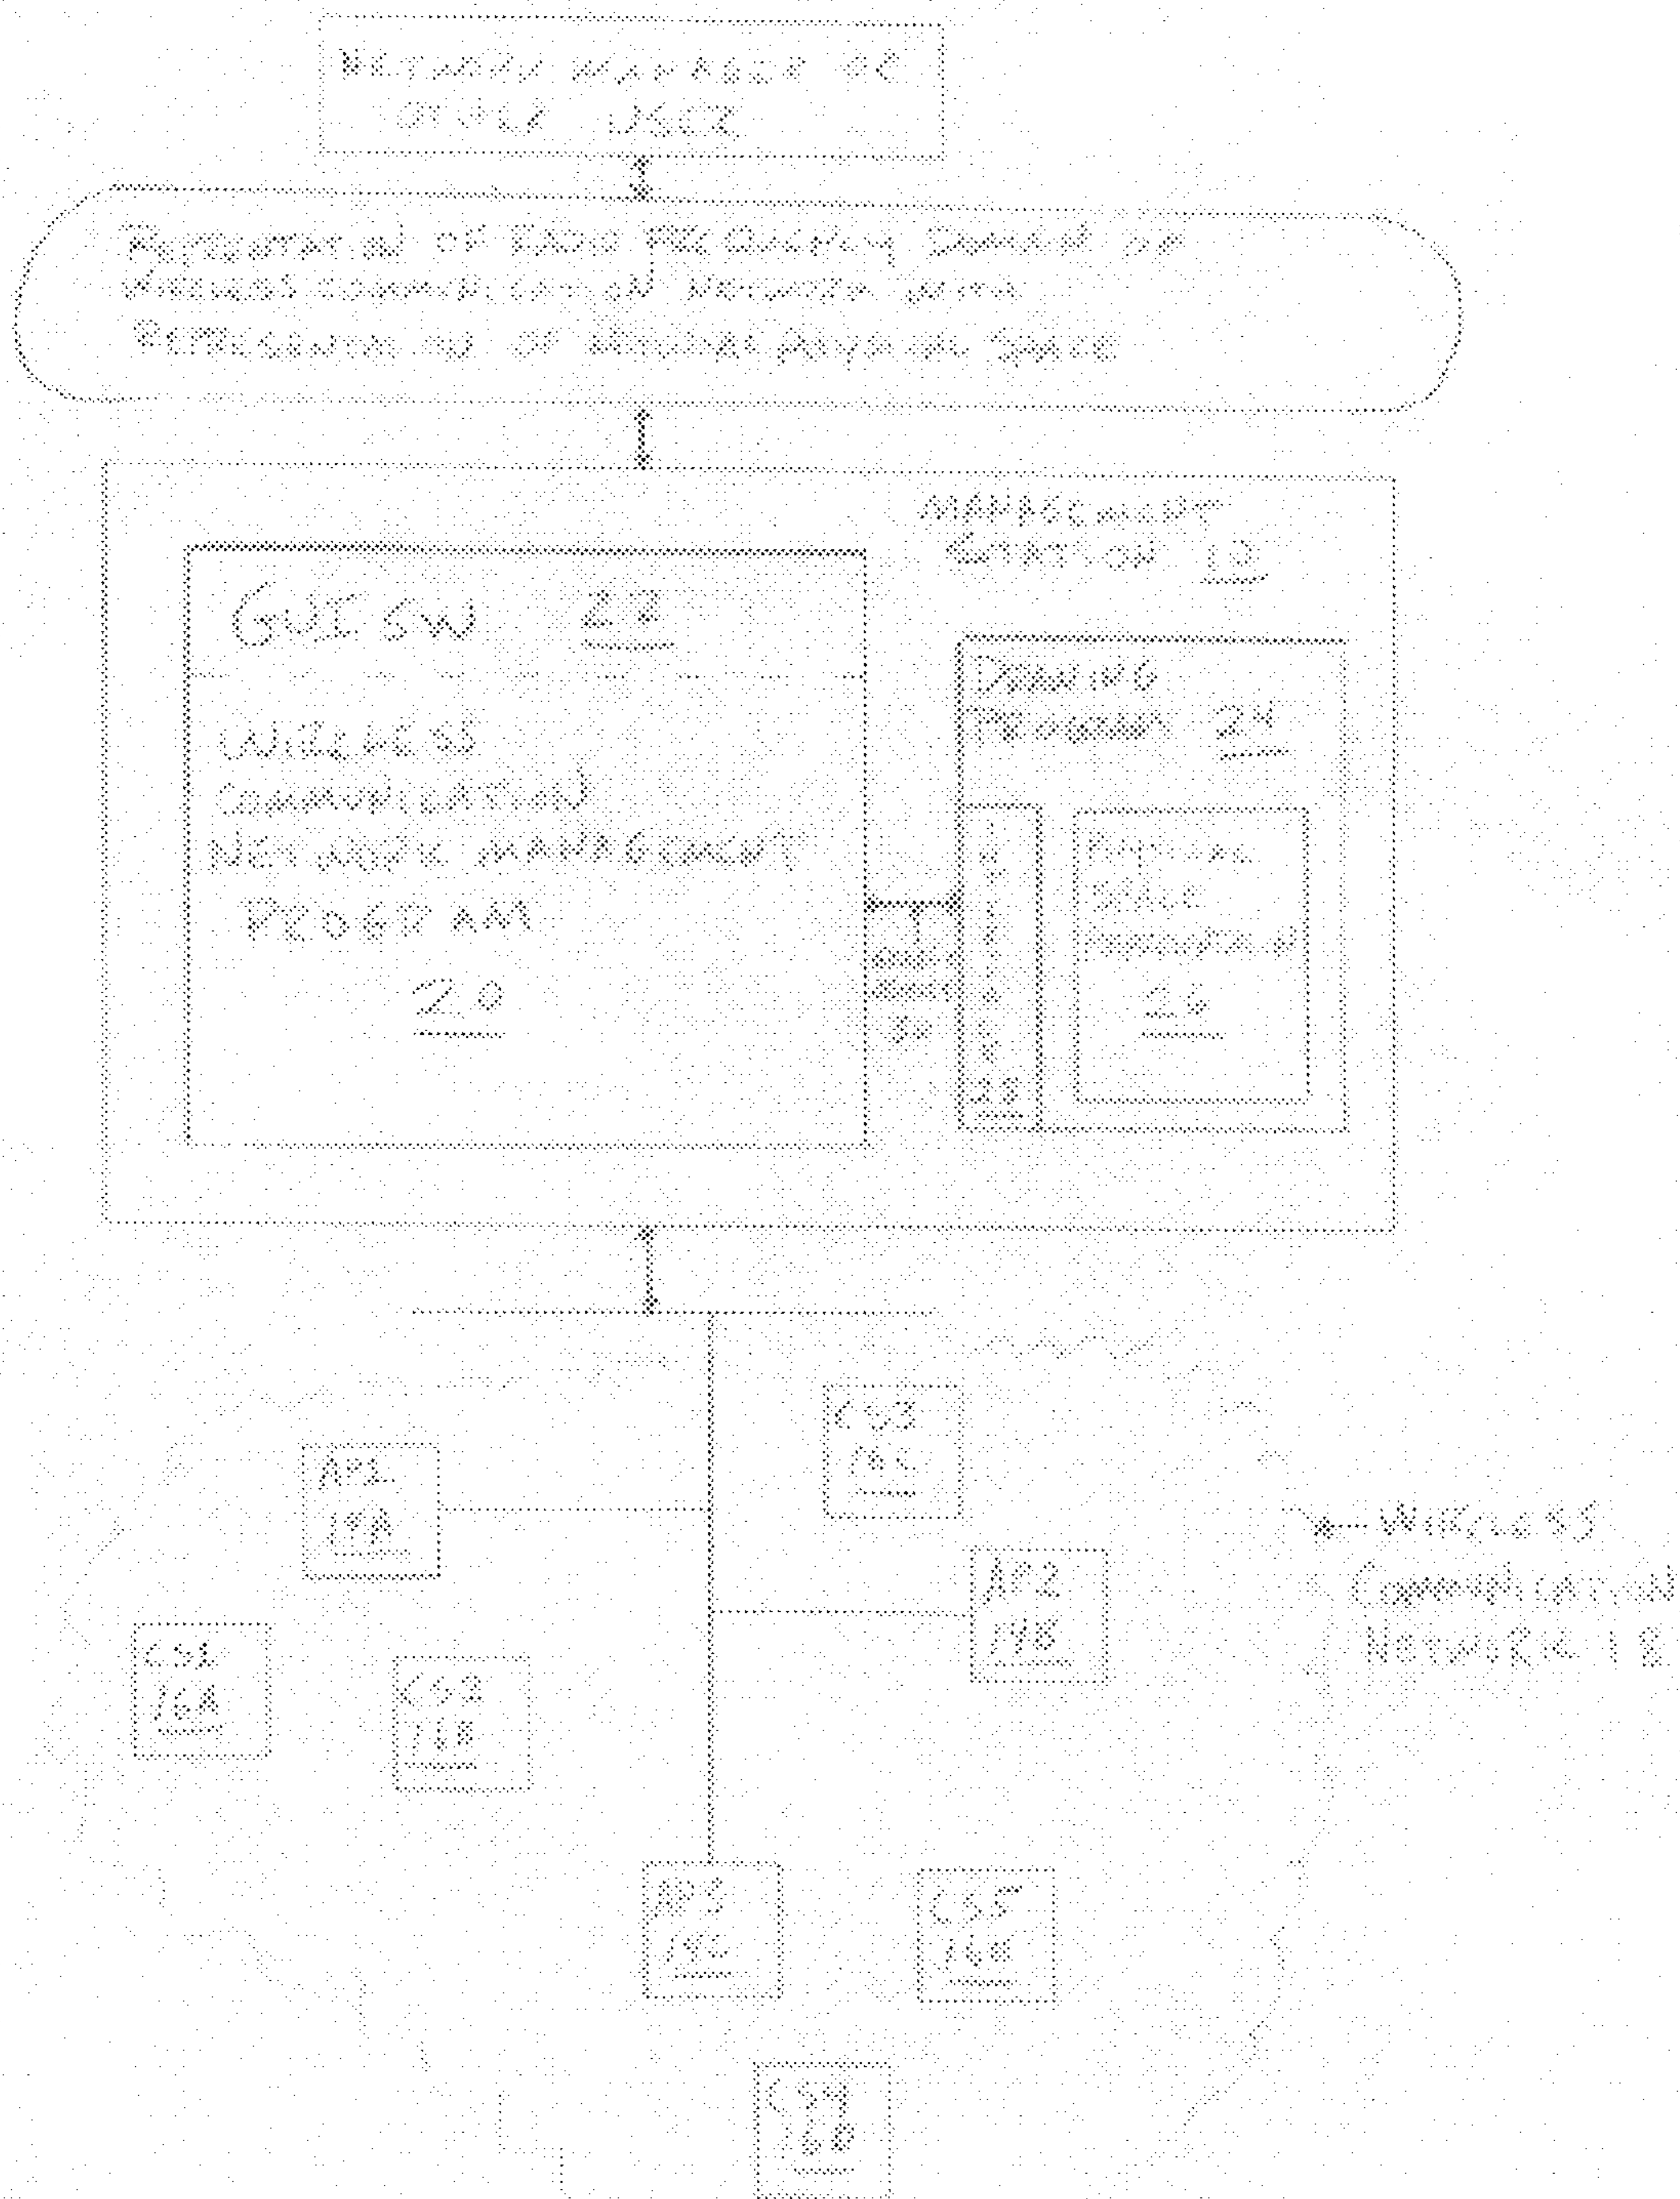 NETWORK MANAGER OR
OTHER USER
PRESENTATION OF RADIO FREQUENCY DOMAIN OF
WIRELESS COMMUNICATION NETWORK WITH
REPRESENTATION OF ACTUAL PHYSICAL SPACE
MANAGEMENT
STATION 10
GUI SW
WIRELESS
COMMUNICATION
NETWORK MANAGEMENT
PROGRAM
20
DRAWING
PROGRAM 24
PHYSICAL
SPACE
INFORMATION
26
AP1
14A
CS3
16C
AP2
14B
CS1
16A
CS2
16B
AP3
14C
CS5
CS4
16D
WIRELESS
COMMUNICATION
NETWORK 18